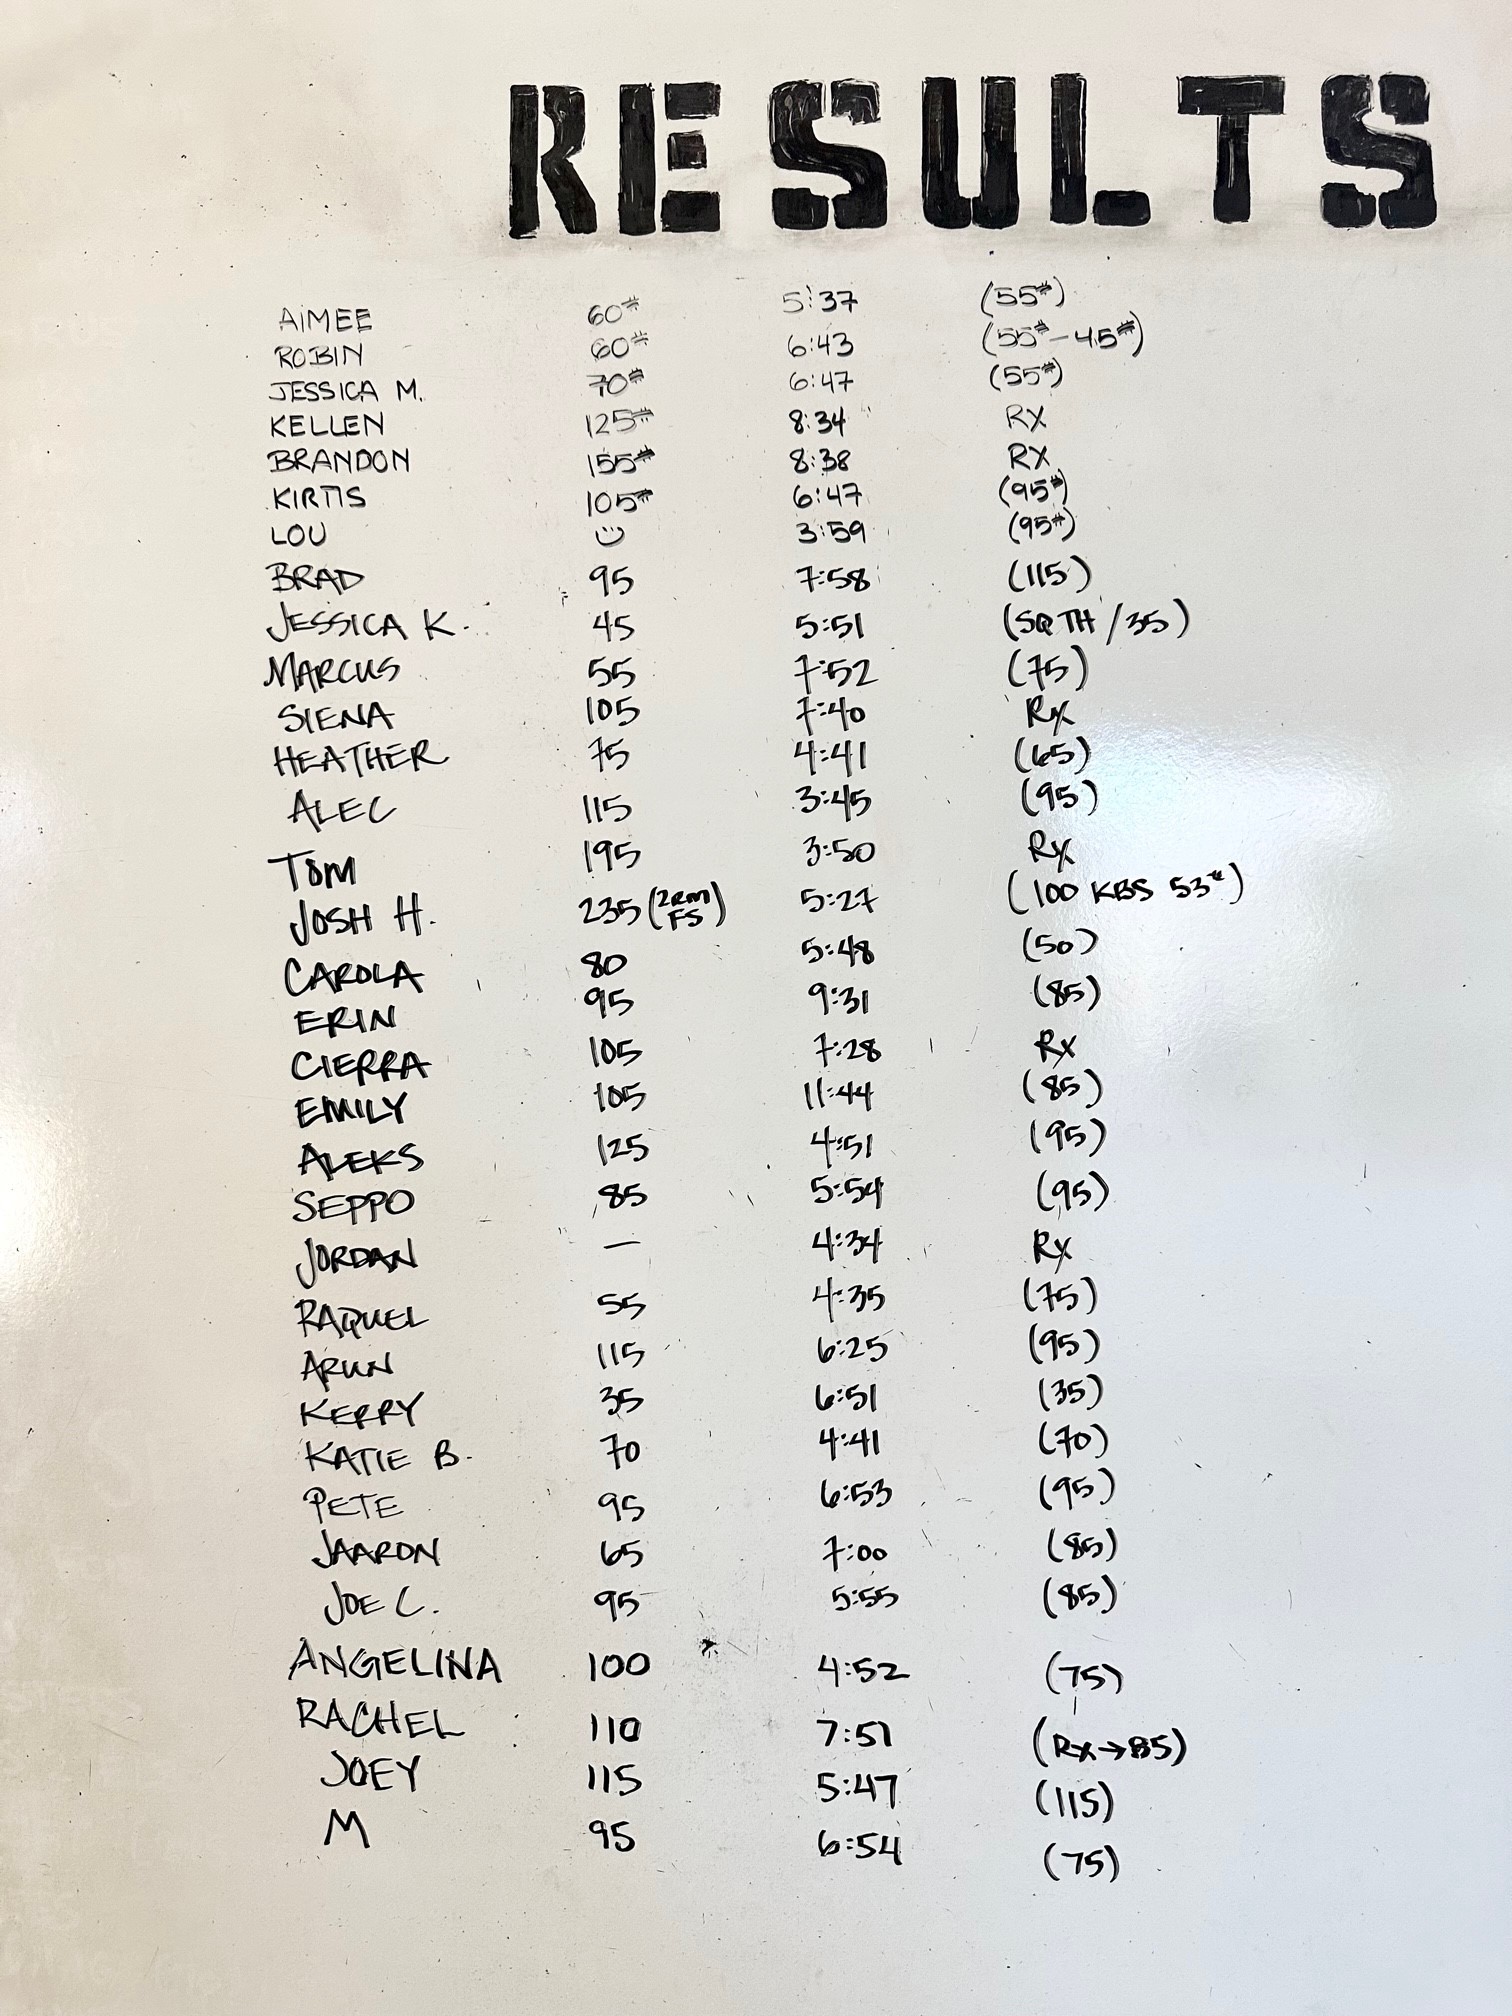 RESULTS
AIMEE 60# 5:37 (55#)
ROBIN 60# 6:43 (55#-45#)
JESSICA M. 70# 6:47 (55#)
KELLEN 125# 8:34 RX
BRANDON 155# 8:38 RX
KIRTIS 105# 6:47 (95#)
LOU 3:59 (95#)
BRAD 95 7:58 (115)
JESSICA K. 45 5:51 (SQ TH/35)
MARCUS 55 7:52 (75)
SIENA 105 7:40 Rx
HEATHER 75 4:41 (65)
ALEC 115 3:45 (95)
TOM 195 3:50 Rx
JOSH H. 235 (2RM FS) 5:27 (100 KBS 53#)
CAROLA 80 5:48 (50)
ERIN 95 9:31 (85)
CIERRA 105 7:28 Rx
EMILY 105 11:44 (85)
ALEKS 125 4:51 (95)
SEPPO 85 5:54 (95)
JORDAN — 4:34 Rx
RAQUEL 55 4:35 (75)
ARUN 115 6:25 (95)
KERRY 35 6:51 (35)
KATIE B. 70 4:41 (70)
PETE 95 6:53 (95)
JAARON 65 7:00 (85)
JOE C. 95 5:55 (85)
ANGELINA 100 4:52 (75)
RACHEL 110 7:51 (Rx→85)
JOEY 115 5:47 (115)
M 95 6:54 (75)